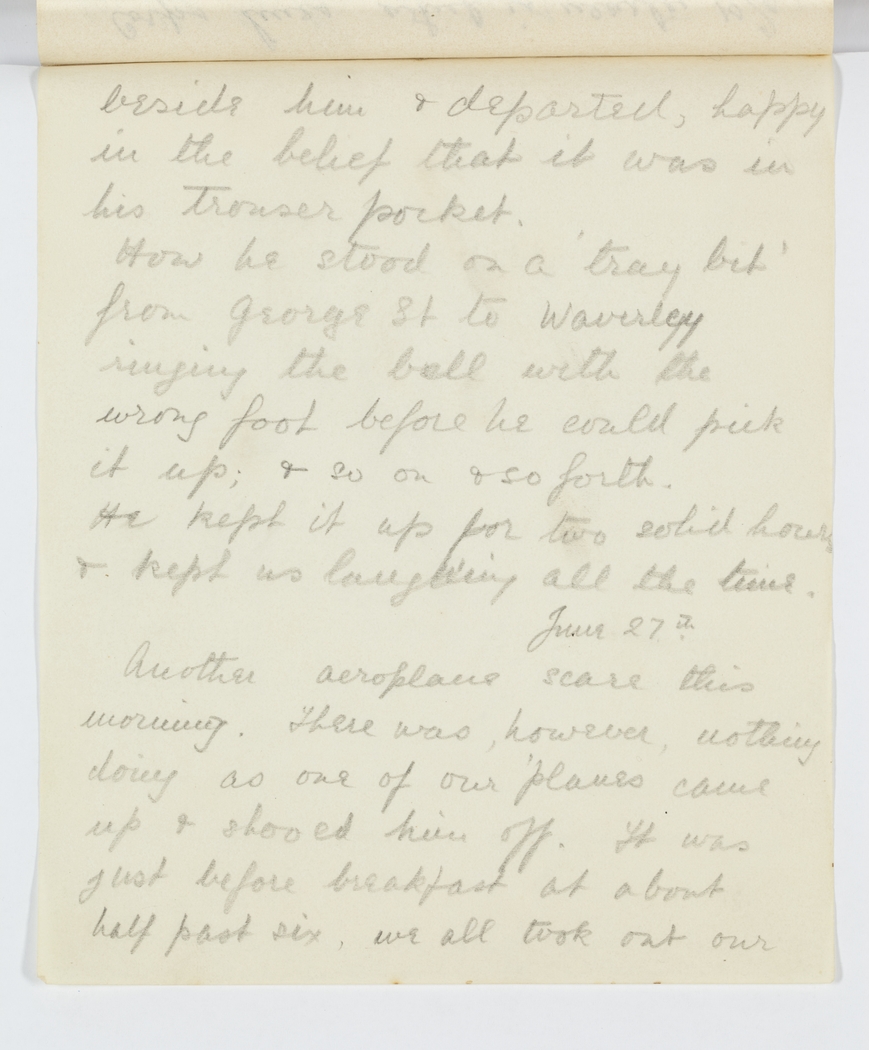 beside him & departed, happy
in the belief that it was in
his trouser pocket.
How he stood on a 'tray bit'
from George St to Waverley
ringing the bell with the
wrong foot before he could pick
it up; & so on & so forth.
He kept it up for two solid hours
& kept us laughing all the time.
June 27th
Another aeroplane scare this
morning. There was, however, nothing
doing as one of our 'planes came
up & shooed him off. It was
just before breakfast at about
half past six, we all took out our